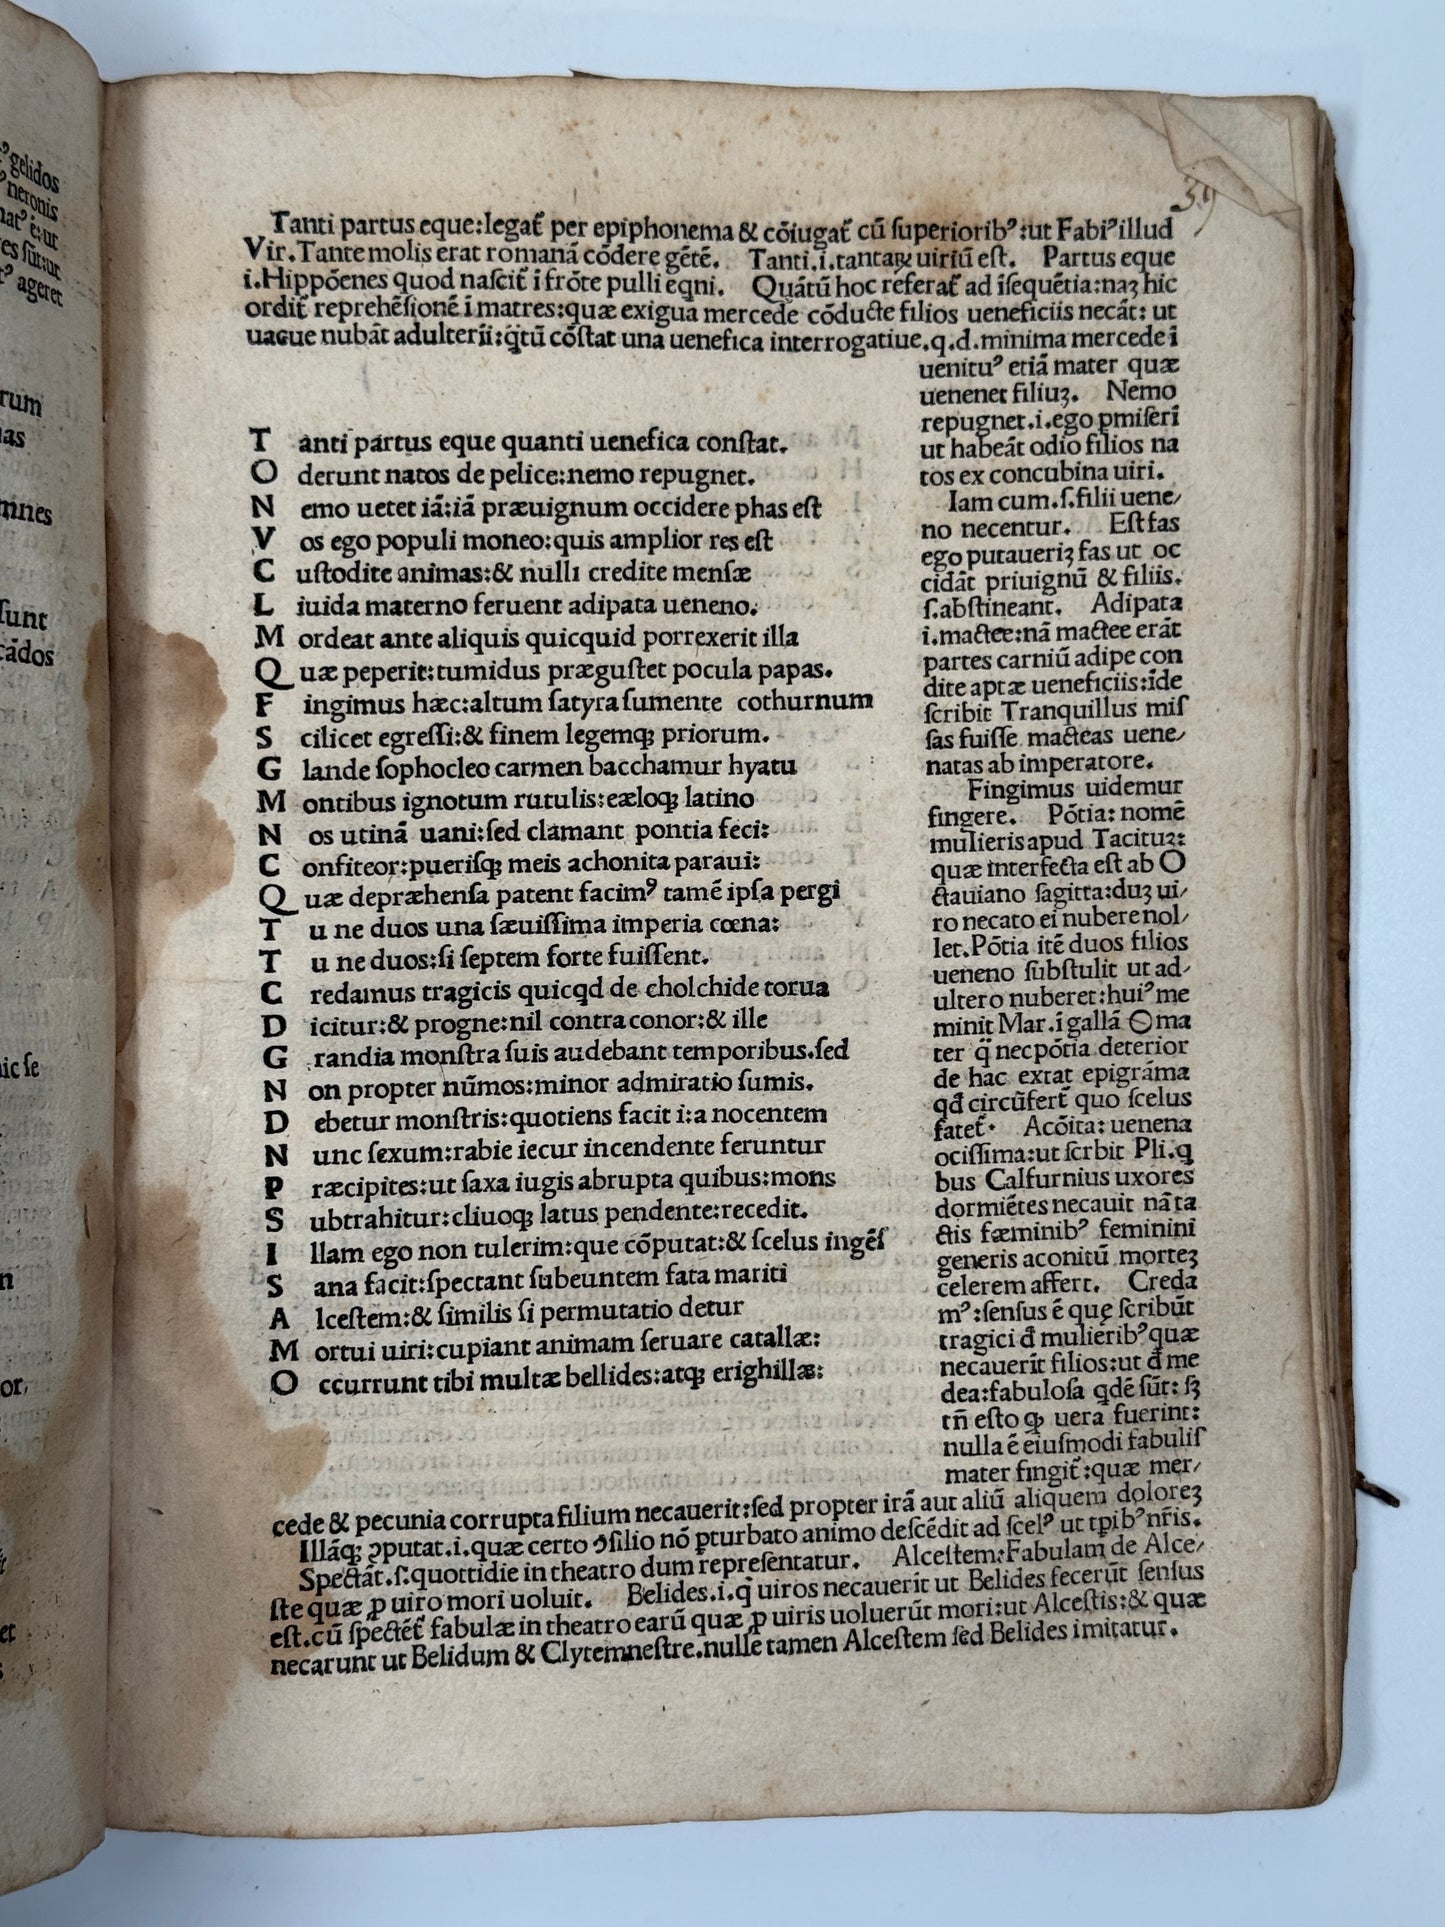 gelidos
neronis
ageret
rum
nas
mnes
ſunt
cādos
39
Tanti partus eque:legat̄ per epiphonema & cōiugat̄ cū ſuperiorib⁹:ut Fabi⁹illud
Vir.Tante molis erat romanā cōdere gētē. Tanti.i.tantaꝝ uiriū eſt. Partus eque
i.Hippōenes quod naſcit̄ ī frōte pulli eqni. Quātū hoc referat̄ ad īſequētia:naꝫ hic
ordit̄ reprehēſionē ī matres:quæ exigua mercede cōducte filios ueneficiis necāt: ut
uague nubāt adulterii:q̄tū cōſtat una uenefica interrogatiue.q.d.minima mercede ī
uenitu⁹ etiā mater quæ
uenenet filiuꝫ. Nemo
repugnet.i.ego ꝑmiſerī
ut habeāt odio filios na
tos ex concubina uiri.
Iam cum.ſ.filii uene/
no necentur. Eſt fas
ego putaueriꝫ fas ut oc
cidāt priuignū & filiis.
ſ.abſtineant. Adipata
i.mactee:nā mactee erāt
partes carniū adipe con
dite aptæ ueneficiis:īde
ſcribit Tranquillus miſ
ſas fuiſſe macteas uene/
natas ab imperatore.
Fingimus uidemur
fingere. Pōtia: nomē
mulieris apud Tacituꝫ:
quæ interfecta eſt ab O
ctauiano ſagitta:duꝫ ui/
ro necato ei nubere nol/
let.Pōtia itē duos filios
ueneno ſubſtulit ut ad/
ultero nuberet:hui⁹ me
minit Mar.ī gallā Θ ma
ter q̄ necpōtia deterior
de hac extat epigrāma
qđ circūfert̄ quo ſcelus
fatet̄. Acōita: uenena
ociſſima:ut ſcrbit Pli.q
bus Calfurnius uxores
dormiētes necauit nā ta
ctis fæminib⁹ feminini
generis aconitū morteꝫ
celerem affert. Creda
m⁹:ſenſus ē que ſcribūt
tragici đ mulierib⁹quæ
necauerīt filios:ut đ me
dea:fabuloſa qdē ſūt: ſꝫ
tn̄ eſto ꝙ uera fuerint:
nulla ē eiuſmodi fabulis
mater fingit̄:quæ mer/
T anti partus eque quanti uenefica conſtat.
O derunt natos de pelice:nemo repugnet.
N emo uetet iā:iā præuignum occidere phas eſt
V os ego populi moneo:quis amplior res eſt
C uſtodite animas:& nulli credite menſæ
L iuida materno feruent adipata ueneno.
M ordeat ante aliquis quicquid porrexerit illa
Q uæ peperit:tumidus præguſtet pocula papas.
F ingimus hæc:altum ſatyra ſumente cothurnum
S cilicet egreſſi:& finem legemqꝫ priorum.
G lande ſophocleo carmen bacchamur hyatu
M ontibus ignotum rutulis:eæloqꝫ latino
N os utinā uani:ſed clamant pontia feci:
C onfiteor:pueriſqꝫ meis achonita paraui:
Q uæ depræhenſa patent facim⁹ tamē ipſa pergi
T u ne duos una ſæuiſſima imperia cœna:
T u ne duos:ſi ſeptem forte fuiſſent.
C redamus tragicis quicqd de cholchide torua
D icitur:& progne:nil contra conor:& ille
G randia monſtra ſuis audebant temporibus.ſed
N on propter nūmos:minor admiratio ſumis.
D ebetur monſtris:quotiens facit i:a nocentem
N unc ſexum:rabie iecur incendente feruntur
P ræcipites:ut ſaxa iugis abrupta quibus:mons
S ubtrahitur:cliuoqꝫ latus pendente:recedit.
I llam ego non tulerim:que cōputat:& ſcelus ingēſ
S ana facit:ſpectant ſubeuntem fata mariti
A lceſtem:& ſimilis ſi permutatio detur
M ortui uiri:cupiant animam ſeruare catallæ:
O ccurrunt tibi multæ bellides:atqꝫ erighillæ:
cede & pecunia corrupta filium necauerit:ſed propter irā aut aliū aliquem doloreꝫ
Illāqꝫ ꝯputat.i.quæ certo ꝯſilio nō ꝑturbato animo deſcēdit ad ſcel⁹ ut tpib⁹ nr̄is.
Spectāt.ſ:quottidie in theatro dum repreſentatur. Alceſtem:Fabulam de Alce/
ſte quæ ꝓ uiro mori uoluit. Belides.i.q̄ uiros necauerīt ut Belides fecerūt ſenſus
eſt.cū ſpectēt̄ fabulæ in theatro earū quæ ꝓ uiris uoluerūt mori:ut Alceſtis:& quæ
necarunt ut Belidum & Clytemneſtre.nulle tamen Alceſtem ſed Belides imitatur.